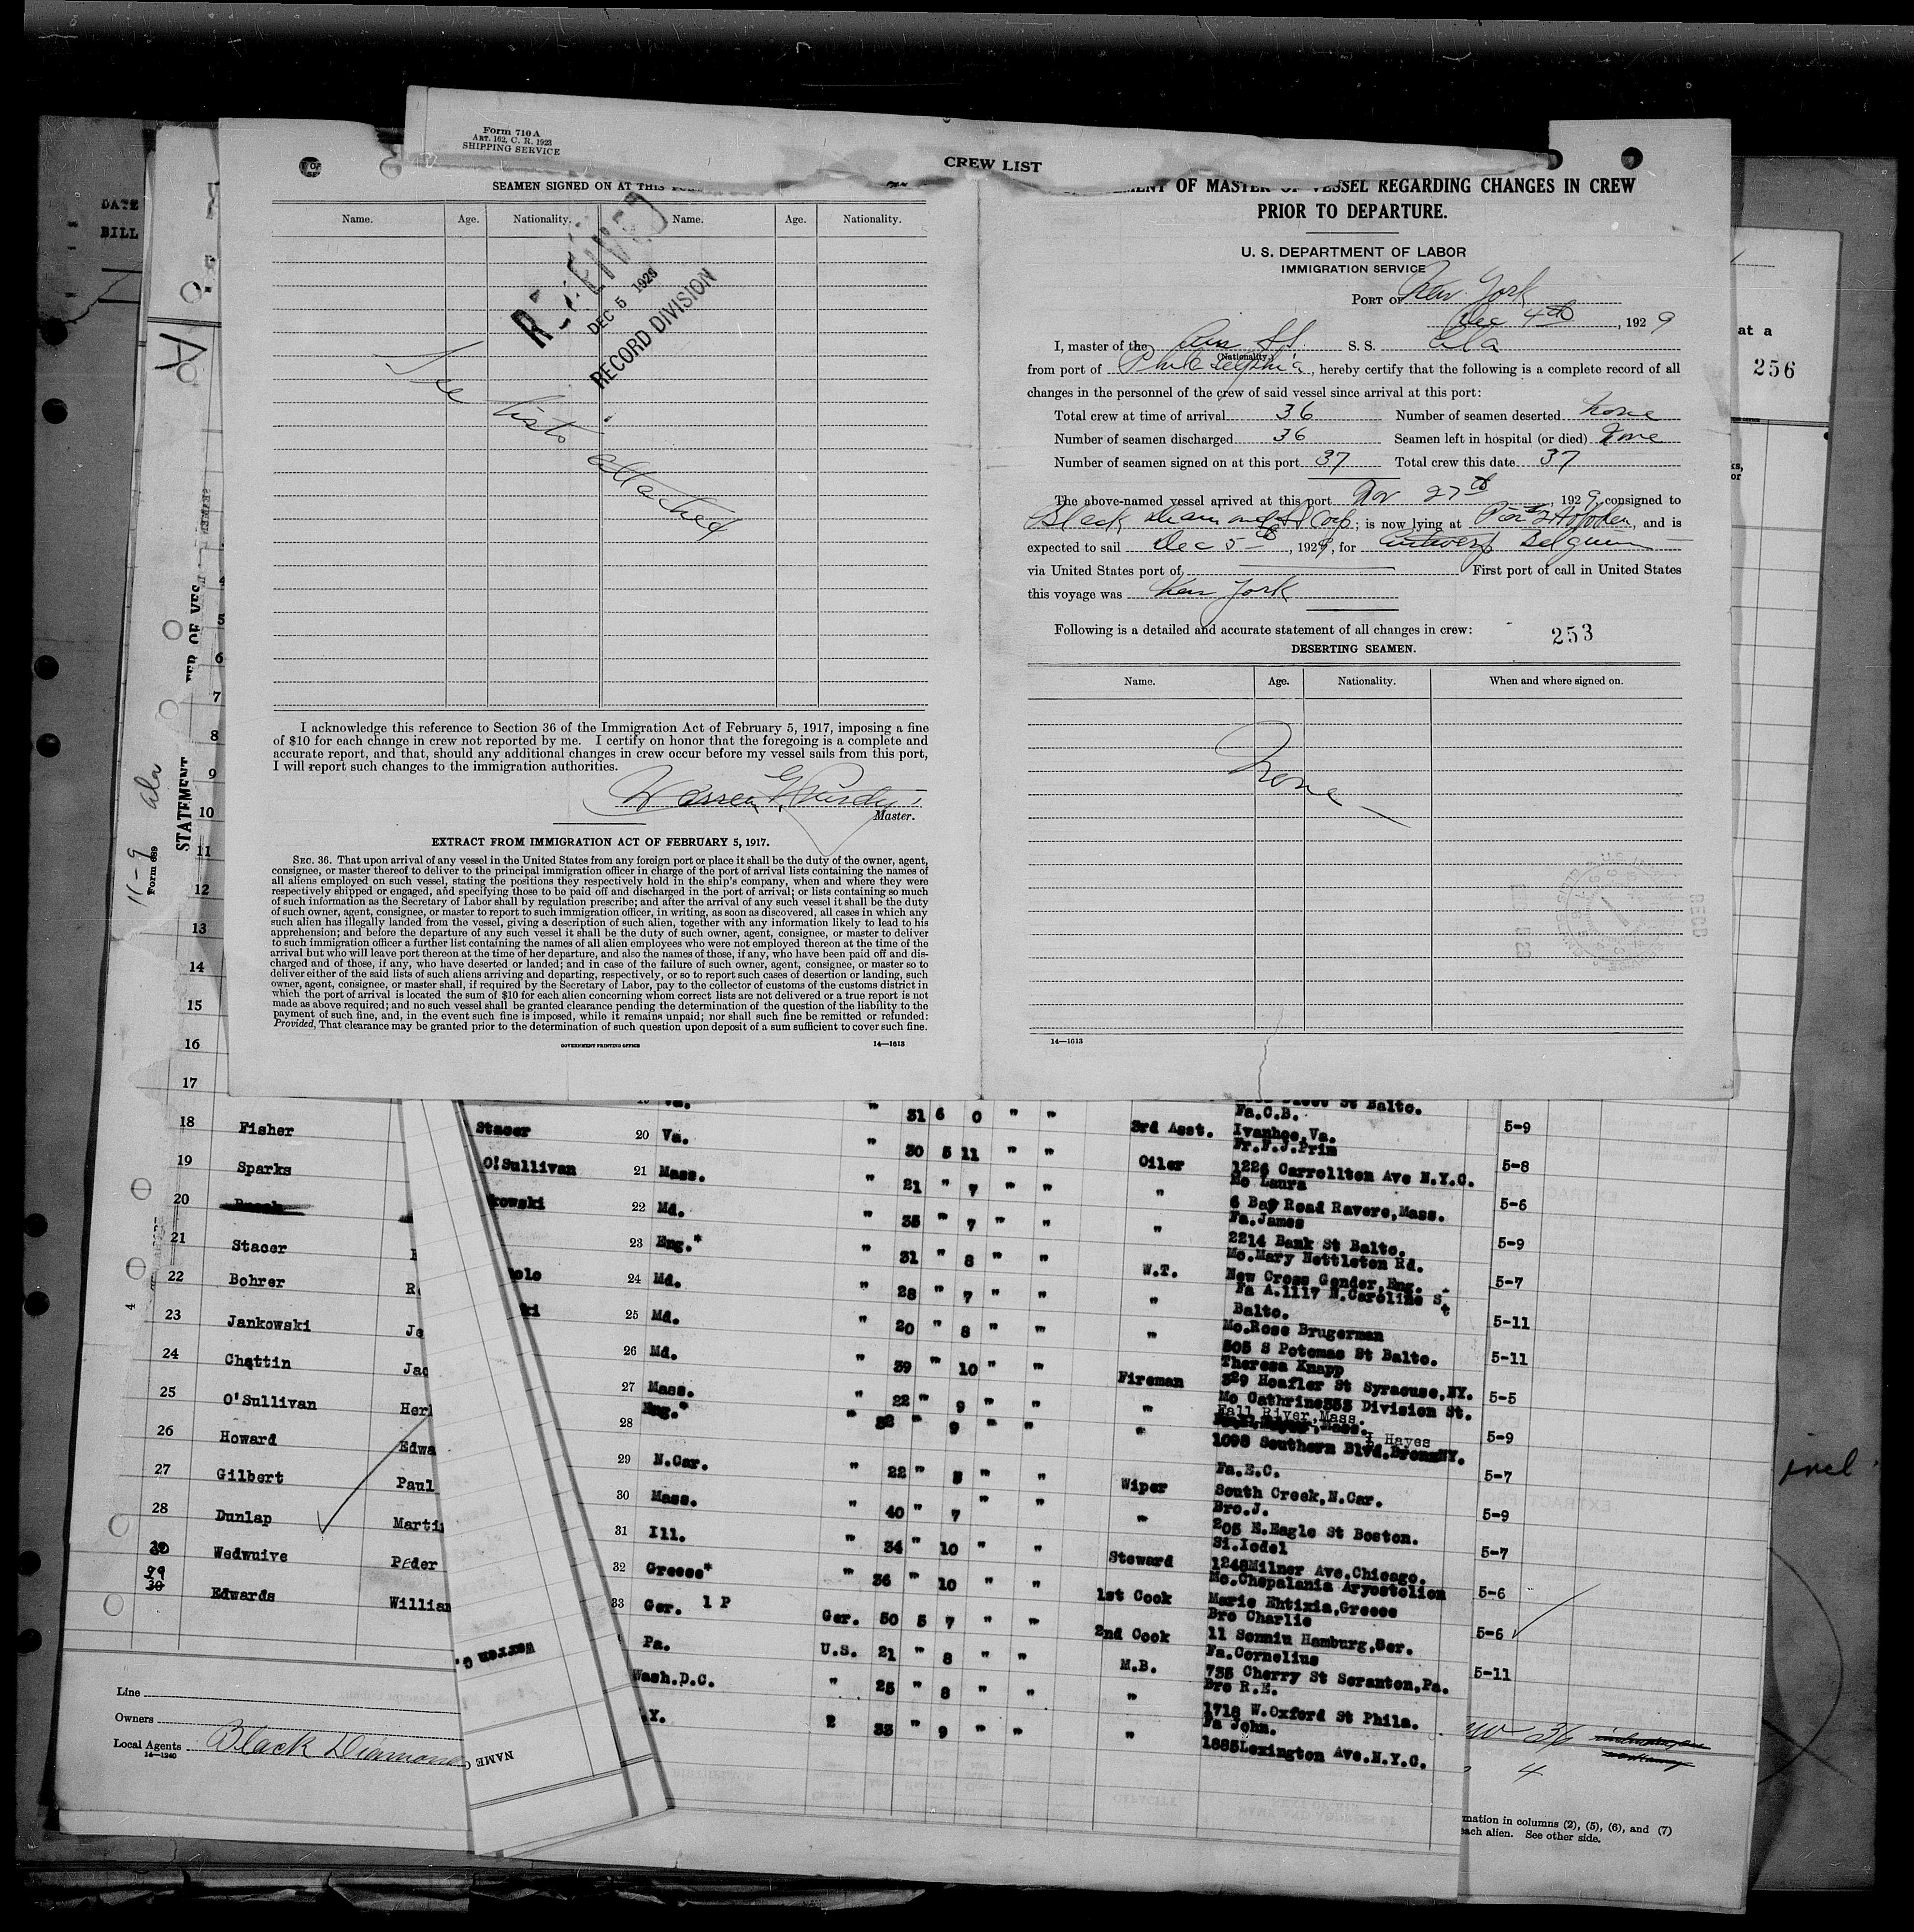 Form 710 A
ART. 162, C. R. 1923
SHIPPING SERVICE
CREW LIST
SEAMEN SIGNED ON AT THIS
Name. Age. Nationality. Name. Age. Nationality.
RECEIVED
DEC 5 1929
RECORD DIVISION
See lists attached
I acknowledge this reference to Section 36 of the Immigration Act of February 5, 1917, imposing a fine
of $10 for each change in crew not reported by me. I certify on honor that the foregoing is a complete and
accurate report, and that, should any additional changes in crew occur before my vessel sails from this port,
I will report such changes to the immigration authorities.
Warren G. Purdy
Master.
EXTRACT FROM IMMIGRATION ACT OF FEBRUARY 5, 1917.
SEC. 36. That upon arrival of any vessel in the United States from any foreign port or place it shall be the duty of the owner, agent,
consignee, or master thereof to deliver to the principal immigration officer in charge of the port of arrival lists containing the names of
all aliens employed on such vessel, stating the positions they respectively hold in the ship's company, when and where they were
respectively shipped or engaged, and specifying those to be paid off and discharged in the port of arrival; or lists containing so much
of such information as the Secretary of Labor shall by regulation prescribe; and after the arrival of any such vessel it shall be the duty
of such owner, agent, consignee, or master to report to such immigration officer, in writing, as soon as discovered, all cases in which any
such alien has illegally landed from the vessel, giving a description of such alien, together with any information likely to lead to his
apprehension; and before the departure of any such vessel it shall be the duty of such owner, agent, consignee, or master to deliver
to such immigration officer a further list containing the names of all alien employees who were not employed thereon at the time of the
arrival but who will leave port thereon at the time of her departure, and also the names of those, if any, who have been paid off and dis-
charged and of those, if any, who have deserted or landed; and in case of the failure of such owner, agent, consignee, or master so to
deliver either of the said lists of such aliens arriving and departing, respectively, or so to report such cases of desertion or landing, such
owner, agent, consignee, or master shall, if required by the Secretary of Labor, pay to the collector of customs of the customs district in
which the port of arrival is located the sum of $10 for each alien concerning whom correct lists are not delivered or a true report is not
made as above required; and no such vessel shall be granted clearance pending the determination of the question of the liability to the
payment of such fine, and, in the event such fine is imposed, while it remains unpaid; nor shall such fine be remitted or refunded:
Provided, That clearance may be granted prior to the determination of such question upon deposit of a sum sufficient to cover such fine.
GOVERNMENT PRINTING OFFICE 14—1613
OF MASTER OF VESSEL REGARDING CHANGES IN CREW
PRIOR TO DEPARTURE.
U. S. DEPARTMENT OF LABOR
IMMIGRATION SERVICE
PORT OF New York
Dec 4th, 1929
I, master of the Am SS. S. S. Ala
(Nationality.)
from port of Philadelphia, hereby certify that the following is a complete record of all
changes in the personnel of the crew of said vessel since arrival at this port:
Total crew at time of arrival 36 Number of seamen deserted none
Number of seamen discharged 36 Seamen left in hospital (or died) none
Number of seamen signed on at this port 37 Total crew this date 37
The above-named vessel arrived at this port Nov 27th, 1929, consigned to
Black Diamond SS Corp; is now lying at Pier 2 Hoboken, and is
expected to sail Dec 5th, 1929, for Antwerp Belgium
via United States port of First port of call in United States
this voyage was New York
Following is a detailed and accurate statement of all changes in crew: 253
DESERTING SEAMEN.
Name. Age. Nationality. When and where signed on.
None
14—1613
DATE
BILL
at a
256
STATEMENT
Form 689
11-9 Ala
4
5
6
7
8
9
10
11
12
13
14
15
16
17
18 Fisher
19 Sparks
20
21 Stacer
22 Bohrer
23 Jankowski
24 Chattin Jac
25 O'Sullivan Her
26 Howard Edwa
27 Gilbert Paul
28 Dunlap Marti
30 Wedwuive Peder
29 Edwards Willia
Line
Owners
Local Agents Black Diamond
14—1240
Warren G.
NAME
31 6 0 " " Fa.C.B.
Stacer 20 Va. " 3rd Asst. Ivanhoe,Va. 5-9
30 5 11 " " Fr.F.J.Prim
O'Sullivan 21 Mass. " Oiler 1226 Carrollton Ave N.Y.C. 5-8
21 " 7 " " Mo Laura
kowski 22 Md. " " 6 Bay Road Ravere,Mass. 5-6
35 " 7 " " Fa.James
23 Eng.* " " 2214 Bank St Balto. 5-9
31 " 8 " " Mo.Mary Nettleton Rd.
24 Md. " W.T. New Cross Gender,Eng. 5-7
28 " 7 " " Fa A.1117 N.Caroline St
25 Md. " " Balto. 5-11
20 " 8 " " Mo.Rose Brugerman
26 Md. " " 505 S Potomac St Balto. 5-11
39 " 10 " " Theresa Knapp
27 Mass. " Fireman 329 Hoefler St Syracuse,NY. 5-5
22 " 9 " " Mo Cathrine353 Division St.
28 Eng.* " 32 " 9 " " " Fall River,Mass. 5-9
I Hayes
1098 Southern Blvd.BronxNY.
29 N.Car. " 22 " 8 " " Wiper Fa.E.C. 5-7
South Creek,N.Car.
30 Mass. " 40 " 7 " " " Bro.J. 5-9
205 E.Eagle St Boston.
31 Ill. " 34 " 10 " " Steward Si.Iodel 5-7
1248Milner Ave.Chicago.
32 Greece* " 36 " 10 " " 1st Cook Mo.Chepalania Aryostolion 5-6
Marie Ehtixia,Greece
33 Ger. 1 P Ger. 50 5 7 " " 2nd Cook Bro Charlie 5-6
11 Sennin Hamburg,Ger.
Pa. U.S. 21 " 8 " " M.B. Fa.Cornelius 5-11
735 Cherry St Scranton,Pa.
Wash.D.C. " 25 " 8 " " " Bro R.E.
1718 W.Oxford St Phila.
Y. 33 " 9 " " " Fa John.
1885Lexington Ave.N.Y.C.
36
4
mation in columns (2), (5), (6), and (7)
each alien. See other side.
incl